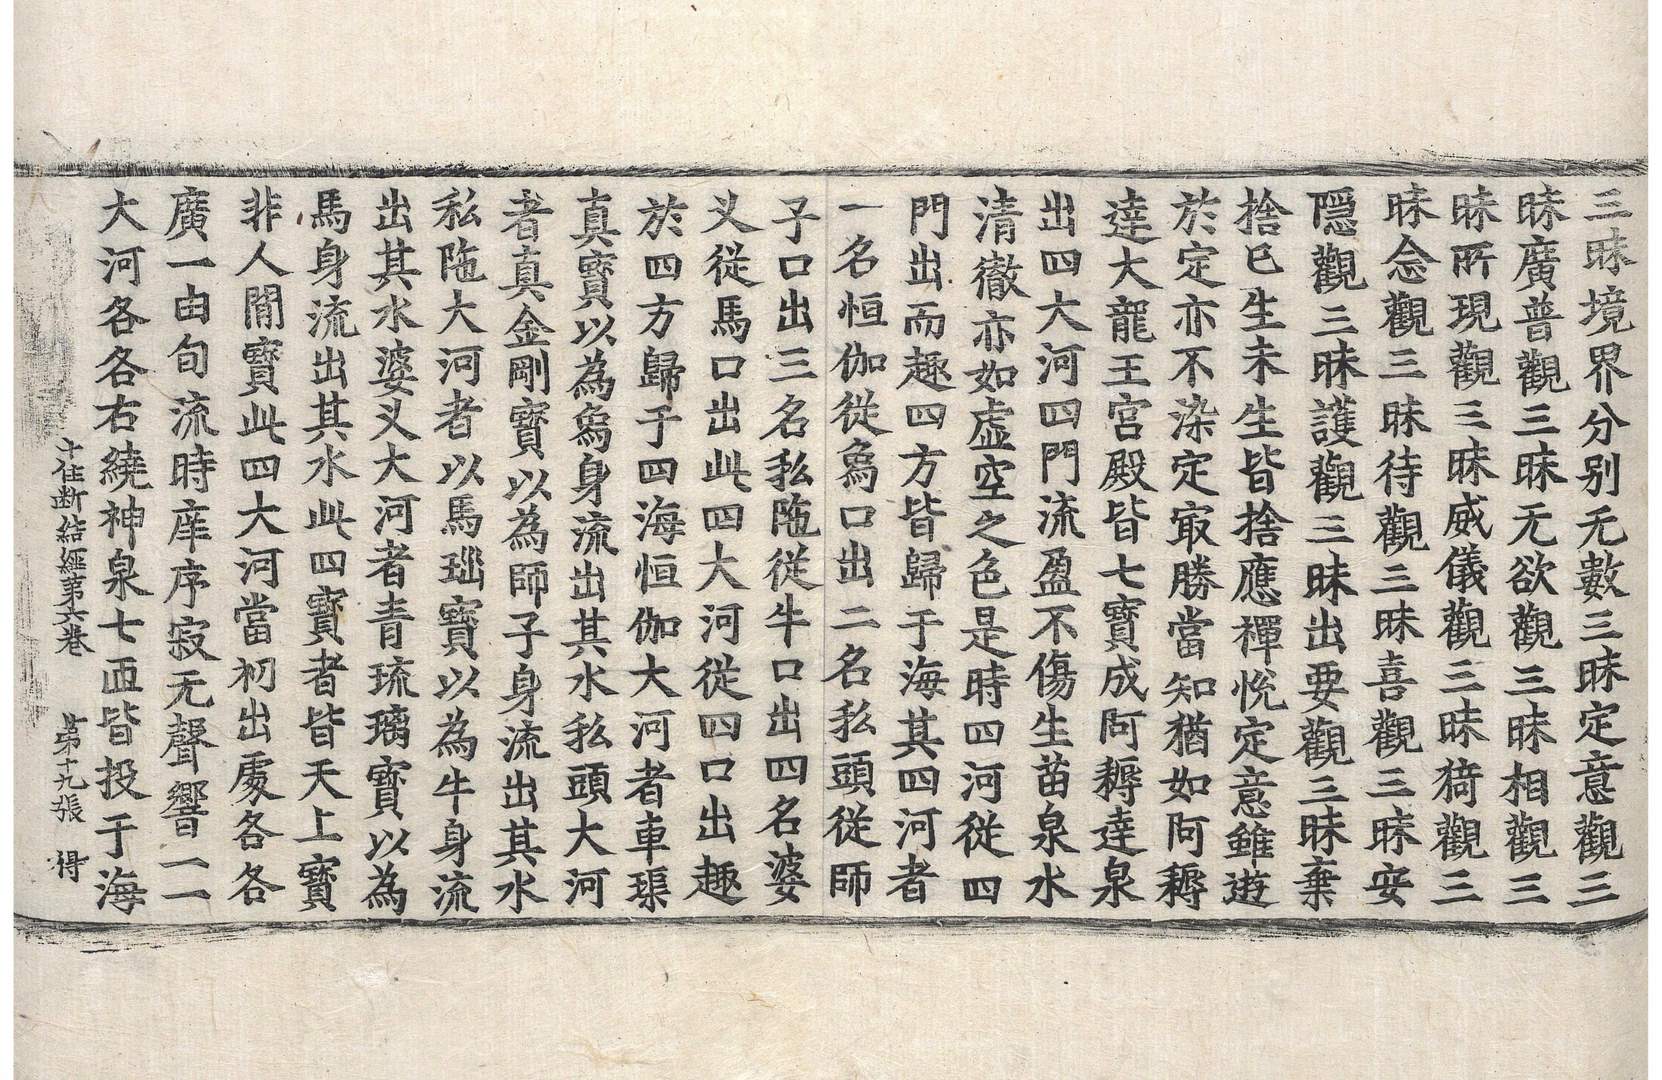 三昧境界分别无數三昧定意觀三
昧廣普觀三昧无欲觀三昧相觀三
昧所現觀三昧威儀觀三昧猗觀三
昧念觀三昧待觀三昧喜觀三昧安
隱觀三昧護觀三昧出要觀三昧棄
捨已生未生皆捨應禪恱定意雖遊
於定亦不染定㝡勝當知猶如阿耨
達大龍王宮殿皆七寶成阿耨達泉
出四大河四門流盈不傷生苗泉水
清徹亦如虛空之色是時四河從四
門出而趣四方皆歸于海其四河者
一名恒伽從象口出二名私頭從師
子口出三名私陁從牛口出四名婆
叉從馬口出此四大河從四口出趣
於四方歸于四海恒伽大河者車璖
真寶以為象身流出其水私頭大河
者真金剛寶以為師子身流出其水
私陁大河者以馬瑙寶以為牛身流
出其水婆叉大河者青琉璃寶以為
馬身流出其水此四寶者皆天上寶
非人間寶此四大河當初出處各各
廣一由旬流時庠序寂无聲響一一
大河各各右繞神泉七匝皆投于海
十住斷結經第六卷 第十九張 得